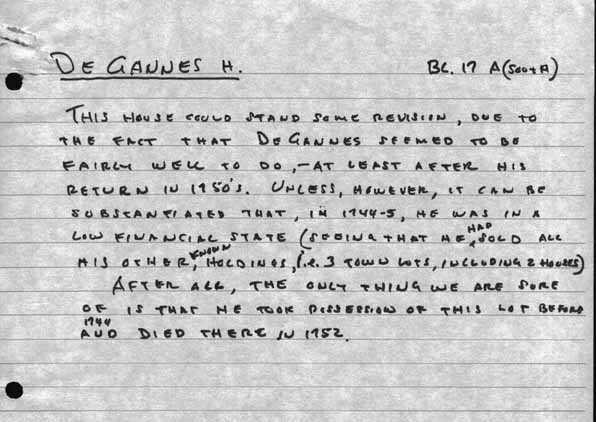 DE GANNES H. BL. 17 A (500+A)
THIS HOUSE COULD STAND SOME REVISION, DUE TO
THE FACT THAT DE GANNES SEEMED TO BE
FAIRLY WELL TO DO, - AT LEAST AFTER HIS
RETURN IN 1750'S. UNLESS, HOWEVER, IT CAN BE
SUBSTANTIATED THAT, IN 1744-5, HE WAS IN A
LOW FINANCIAL STATE (SEEING THAT HE HAD SOLD ALL
HIS OTHER, KNOWN HOLDINGS, (i.e. 3 TOWN LOTS, INCLUDING 2 HOUSES)
AFTER ALL, THE ONLY THING WE ARE SURE
OF IS THAT HE TOOK POSSESSION OF THIS LOT BEFORE
1744 AND DIED THERE IN 1752.